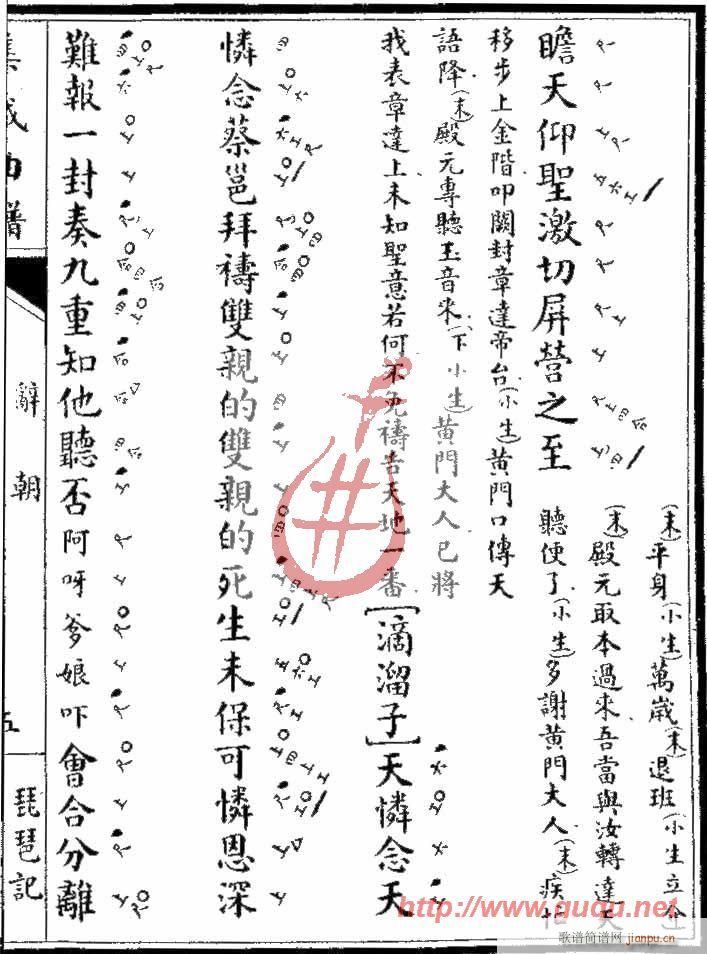 瞻天仰聖激切屏營之至
(末)平身(小生)萬歲(末)退班(小生立仝
(末)殿元取本過來吾當與汝轉達天
聽便了(小生)多謝黃門大人(末)疾忙
移步上金階叩闕封章達帝台(小生)黃門口傳天
語降(末)殿元專聽玉音來(下小生)黃門大人已將
我表章達上未知聖意若何不免禱告天地一番[滴溜子]天憐念天
憐念蔡邕拜禱雙親的雙親的死生未保可憐恩深
難報一封奏九重知他聽否阿呀爹娘吓會合分離
集成曲譜
辭朝
五
琵琶記
http://www.ququ.net
歌谱简谱网
jianpu.cn